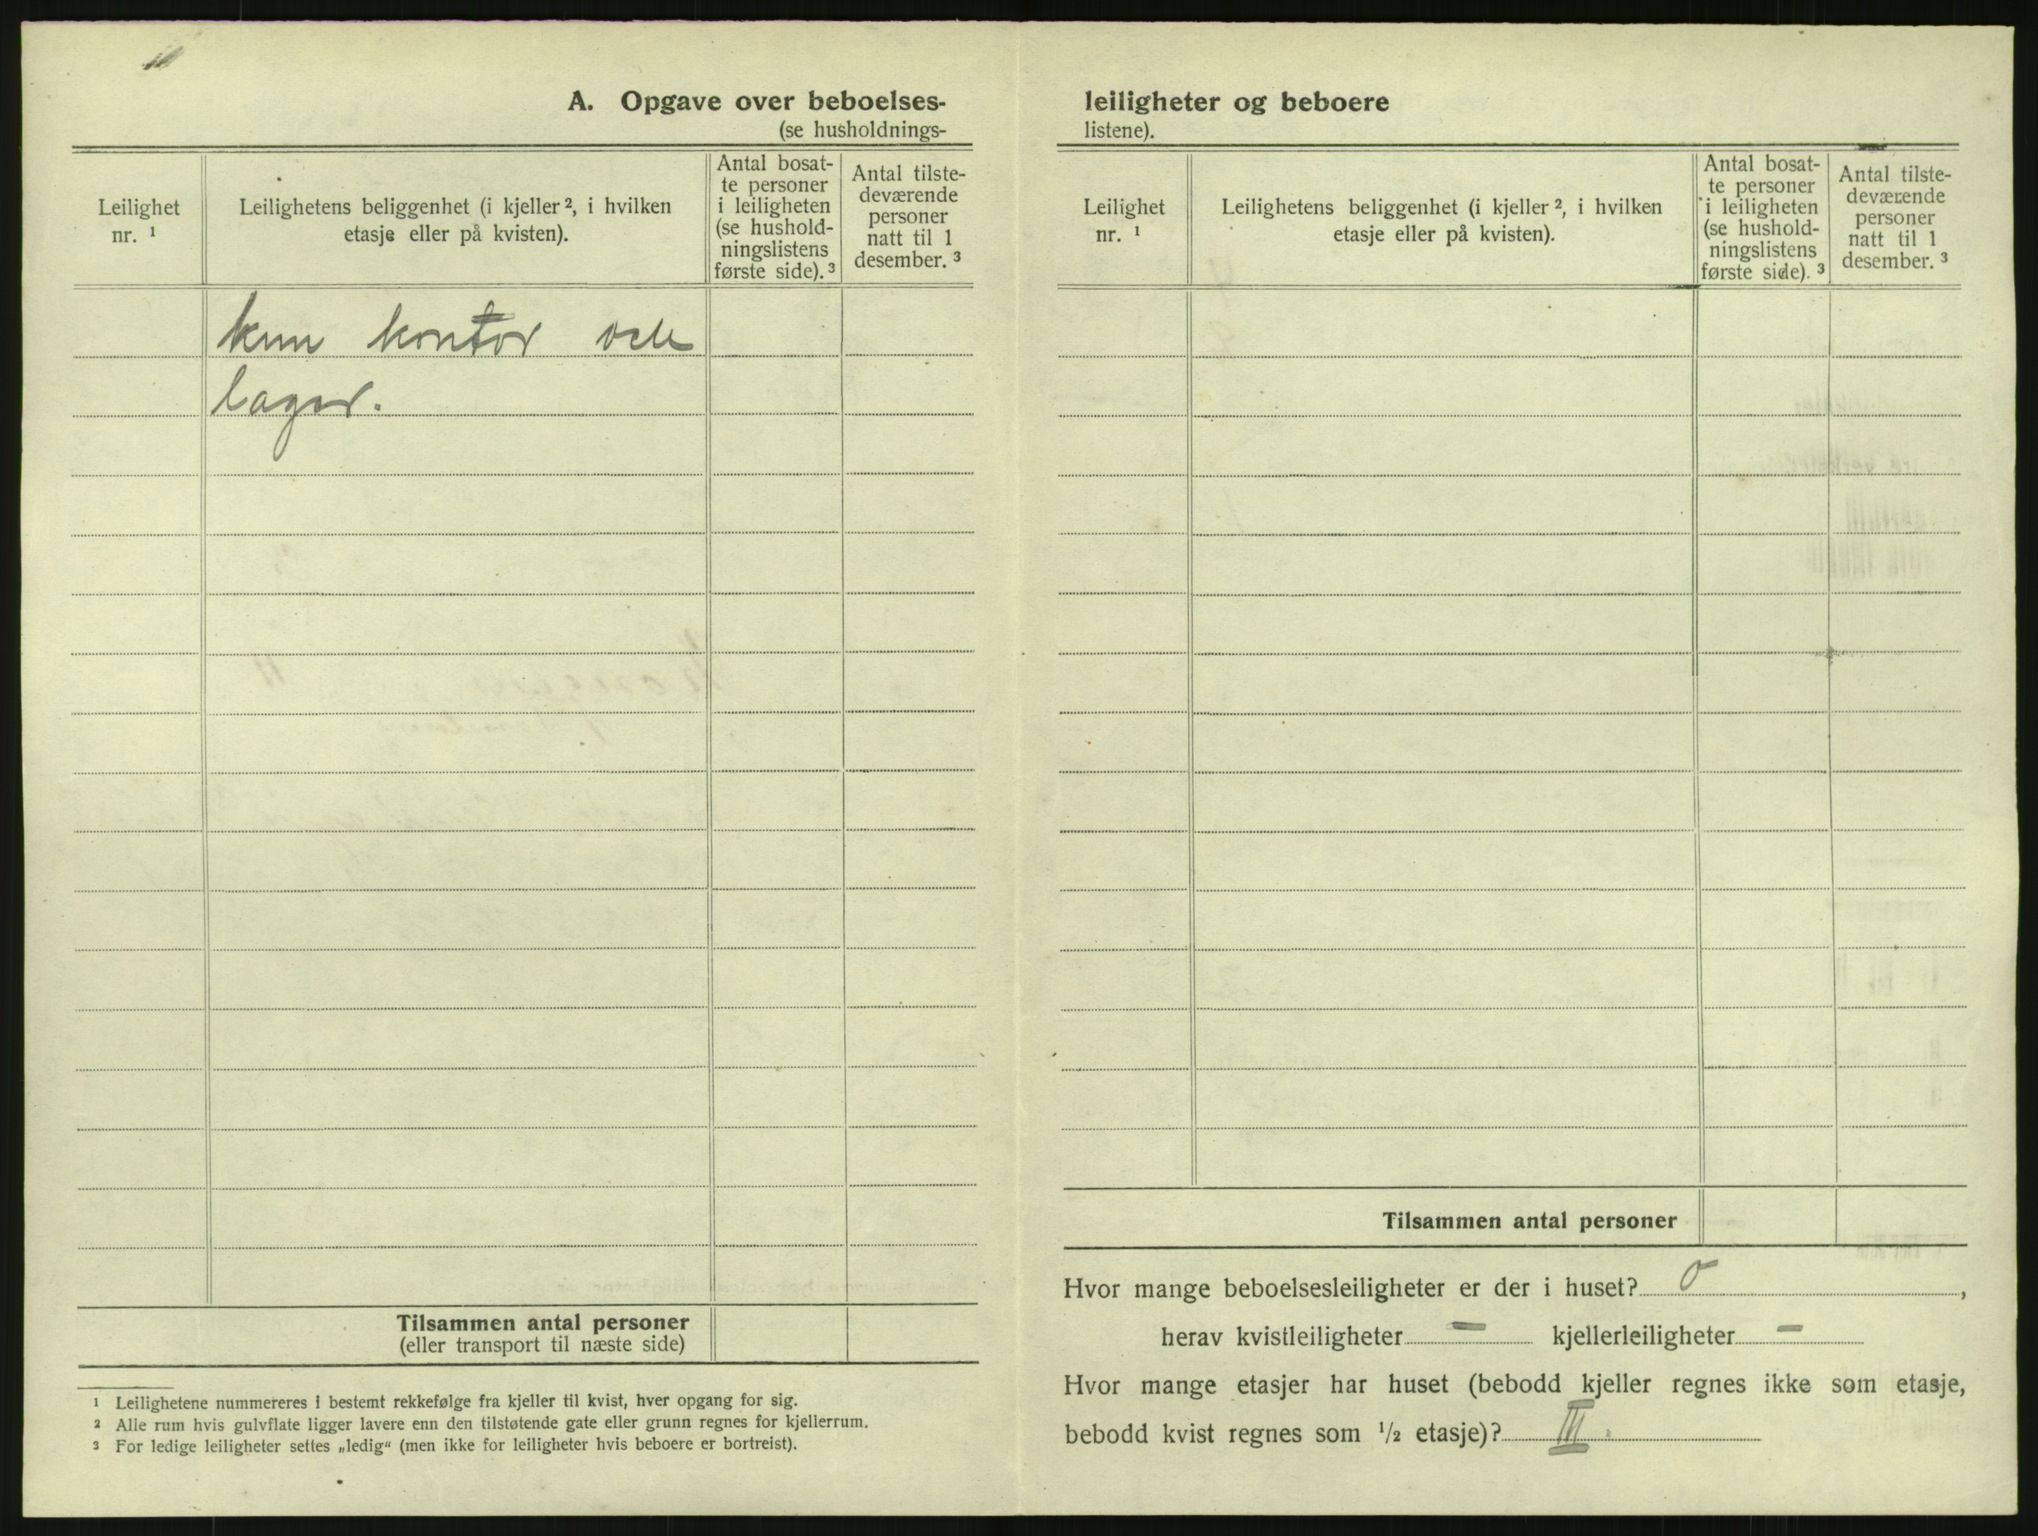 A. Opgave over beboelses-
(se husholdnings-
Leilighet
nr. ¹
Leilighetens beliggenhet (i kjeller ², i hvilken
etasje eller på kvisten).
Antal bosat-
te personer
i leiligheten
(se hushold-
ningslistens
første side). ³
Antal tilste-
deværende
personer
natt til 1
desember. ³
kun kontor och
lager.
Tilsammen antal personer
(eller transport til næste side)
¹ Leilighetene nummereres i bestemt rekkefølge fra kjeller til kvist, hver opgang for sig.
² Alle rum hvis gulvflate ligger lavere enn den tilstøtende gate eller grunn regnes for kjellerrum.
³ For ledige leiligheter settes „ledig“ (men ikke for leiligheter hvis beboere er bortreist).
leiligheter og beboere
listene).
Leilighet
nr. ¹
Leilighetens beliggenhet (i kjeller ², i hvilken
etasje eller på kvisten).
Antal bosat-
te personer
i leiligheten
(se hushold-
ningslistens
første side). ³
Antal tilste-
deværende
personer
natt til 1
desember. ³
Tilsammen antal personer
Hvor mange beboelsesleiligheter er der i huset? 0,
herav kvistleiligheter — kjellerleiligheter —
Hvor mange etasjer har huset (bebodd kjeller regnes ikke som etasje,
bebodd kvist regnes som ½ etasje)? III.